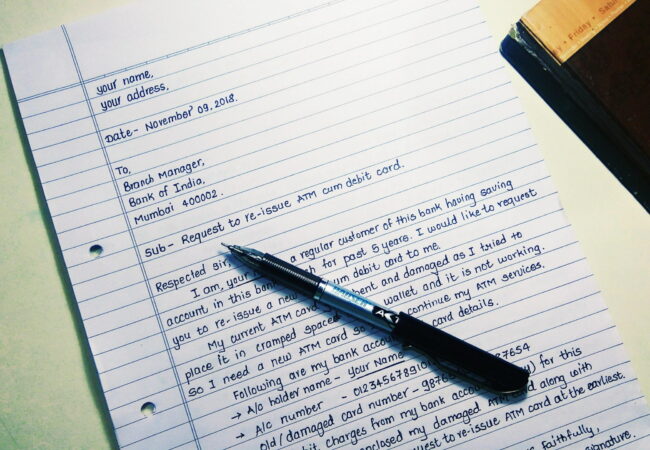 Friday
your name,
your address,
Date- November 09, 2018.
To,
Branch Manager,
Bank of India,
Mumbai 400002.
Sub- Request to re-issue ATM cum debit card.
Respected sir,
I am, your a regular customer of this bank having saving
account in this for past 5 years. I would like to request
you to re-issue a new cum debit card to me.
My current ATM card and damaged as I tried to
place it in cramped space wallet and it is not working.
so I need a new ATM card so continue my ATM services.
Following are my bank card details.
→ A/c holder name - Your Name
→ A/c number - 01234567891
old/damaged card number - 987654
charges from my bank for this
enclosed my damaged along with
to re-issue ATM card at the earliest.
faithfully,
signature.